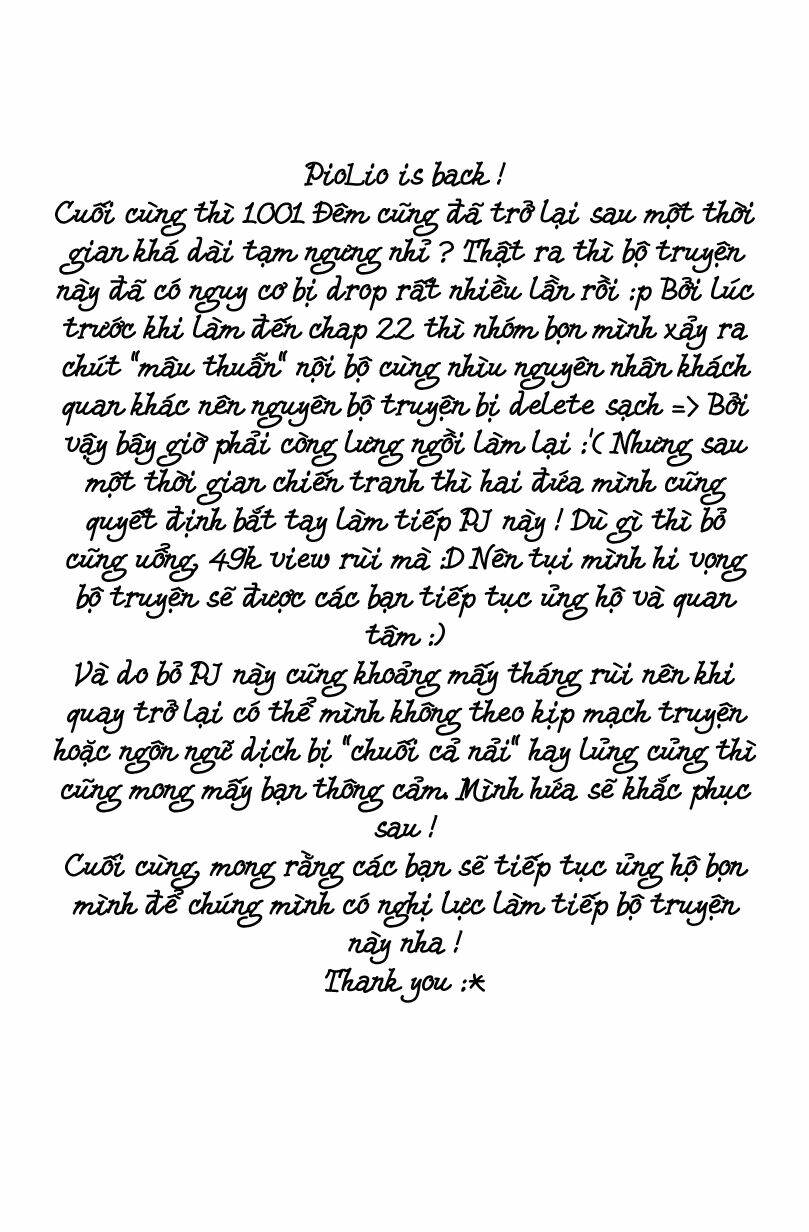 PioLio is back !
Cuối cùng thì 1001 Đêm cũng đã trở lại sau một thời
gian khá dài tạm ngưng nhỉ ? Thật ra thì bộ truyện
này đã có nguy cơ bị drop rất nhiều lần rồi :p Bởi lúc
trước khi làm đến chap 22 thì nhóm bọn mình xảy ra
chút "mâu thuẫn" nội bộ cùng nhìu nguyên nhân khách
quan khác nên nguyên bộ truyện bị delete sạch => Bởi
vậy bây giờ phải còng lưng ngồi làm lại :'( Nhưng sau
một thời gian chiến tranh thì hai đứa mình cũng
quyết định bắt tay làm tiếp PJ này ! Dù gì thì bỏ
cũng uổng, 49k view rùi mà :D Nên tụi mình hi vọng
bộ truyện sẽ được các bạn tiếp tục ủng hộ và quan
tâm :)
Và do bỏ PJ này cũng khoảng mấy tháng rùi nên khi
quay trở lại có thể mình không theo kịp mạch truyện
hoặc ngôn ngữ dịch bị "chuối cả nải" hay lủng củng thì
cũng mong mấy bạn thông cảm. Mình hứa sẽ khắc phục
sau !
Cuối cùng, mong rằng các bạn sẽ tiếp tục ủng hộ bọn
mình để chúng mình có nghị lực làm tiếp bộ truyện
này nha !
Thank you :*